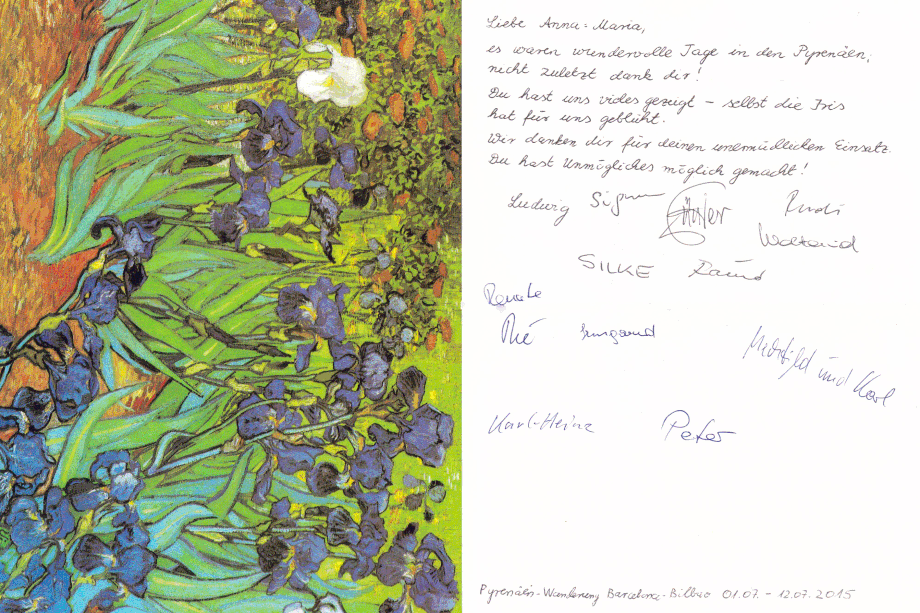 Liebe Anna-Maria,
es waren wundervolle Tage in den Pyrenäen,
nicht zuletzt dank dir!
Du hast uns vieles gezeigt – selbst die Iris
hat für uns geblüht.
Wir danken dir für deinen unermüdlichen Einsatz.
Du hast Unmögliches möglich gemacht!
Ludwig Rudi
SILKE
Renate
Irmgard
Mechthild und Karl
Karl-Heinz Peter
Pyrenäen-Wanderung Barcelona-Bilbao 01.07. – 12.07.2015